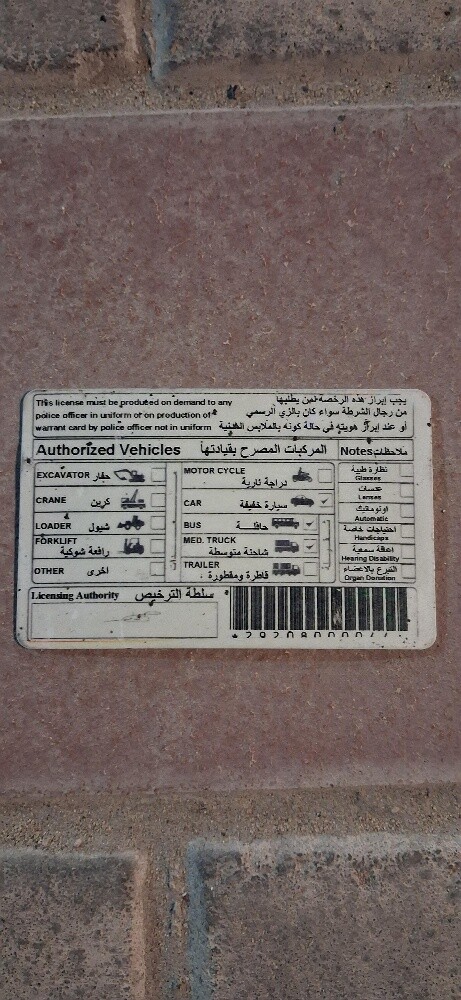 This license must be produted on demand to any
police officer in uniform of on production of
warrant card by police officer not in uniform
يجب إبراز هذه الرخصة لمن يطلبها
من رجال الشرطة سواء كان بالزي الرسمي
أو عند إبراز هويته في حالة كونه بالملابس المدنية
Authorized Vehicles المركبات المصرح بقيادتها
EXCAVATOR حفار
CRANE كرين
LOADER شيول
FORKLIFT
رافعة شوكية
OTHER اخرى
MOTOR CYCLE
دراجة نارية
CAR سيارة خفيفة
BUS حافلة
MED. TRUCK
شاحنة متوسطة
TRAILER
قاطرة ومقطورة
Notes ملاحظات
نظارة طبية
Glasses
عدسات
Lenses
اوتوماتيك
Automatic
احتياجات خاصة
Handicaps
اعاقة سمعية
Hearing Disability
التبرع بالاعضاء
Organ Donation
Licensing Authority سلطة الترخيص